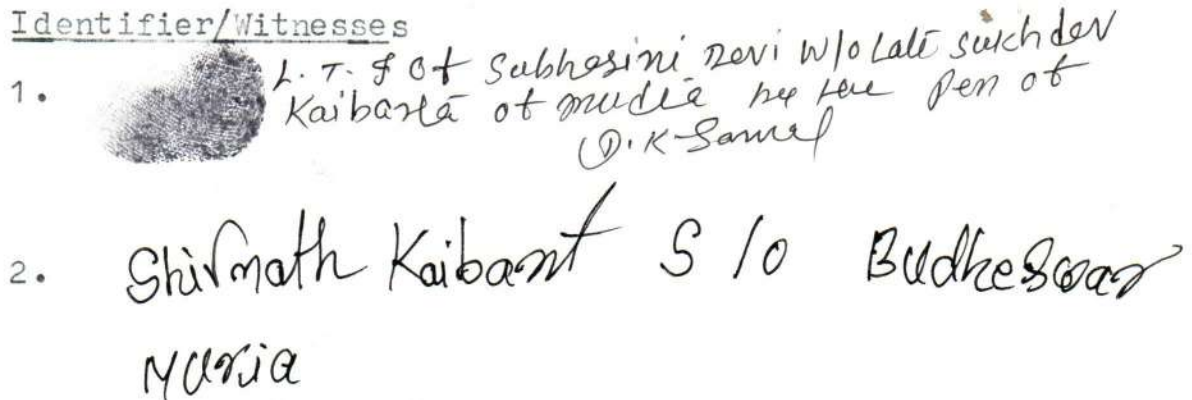 Identifier/Witnesses
1.
L. T. I Of Subhasini Devi W/o Late Sukhdev
Kaibarta of mudia by the Pen of
D.K Samal
2. Shivnath Kaibart S/o Budheswar
Muria